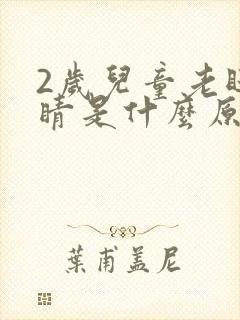 2歲兒童老眨
睛是什麼原
葉甫盖尼